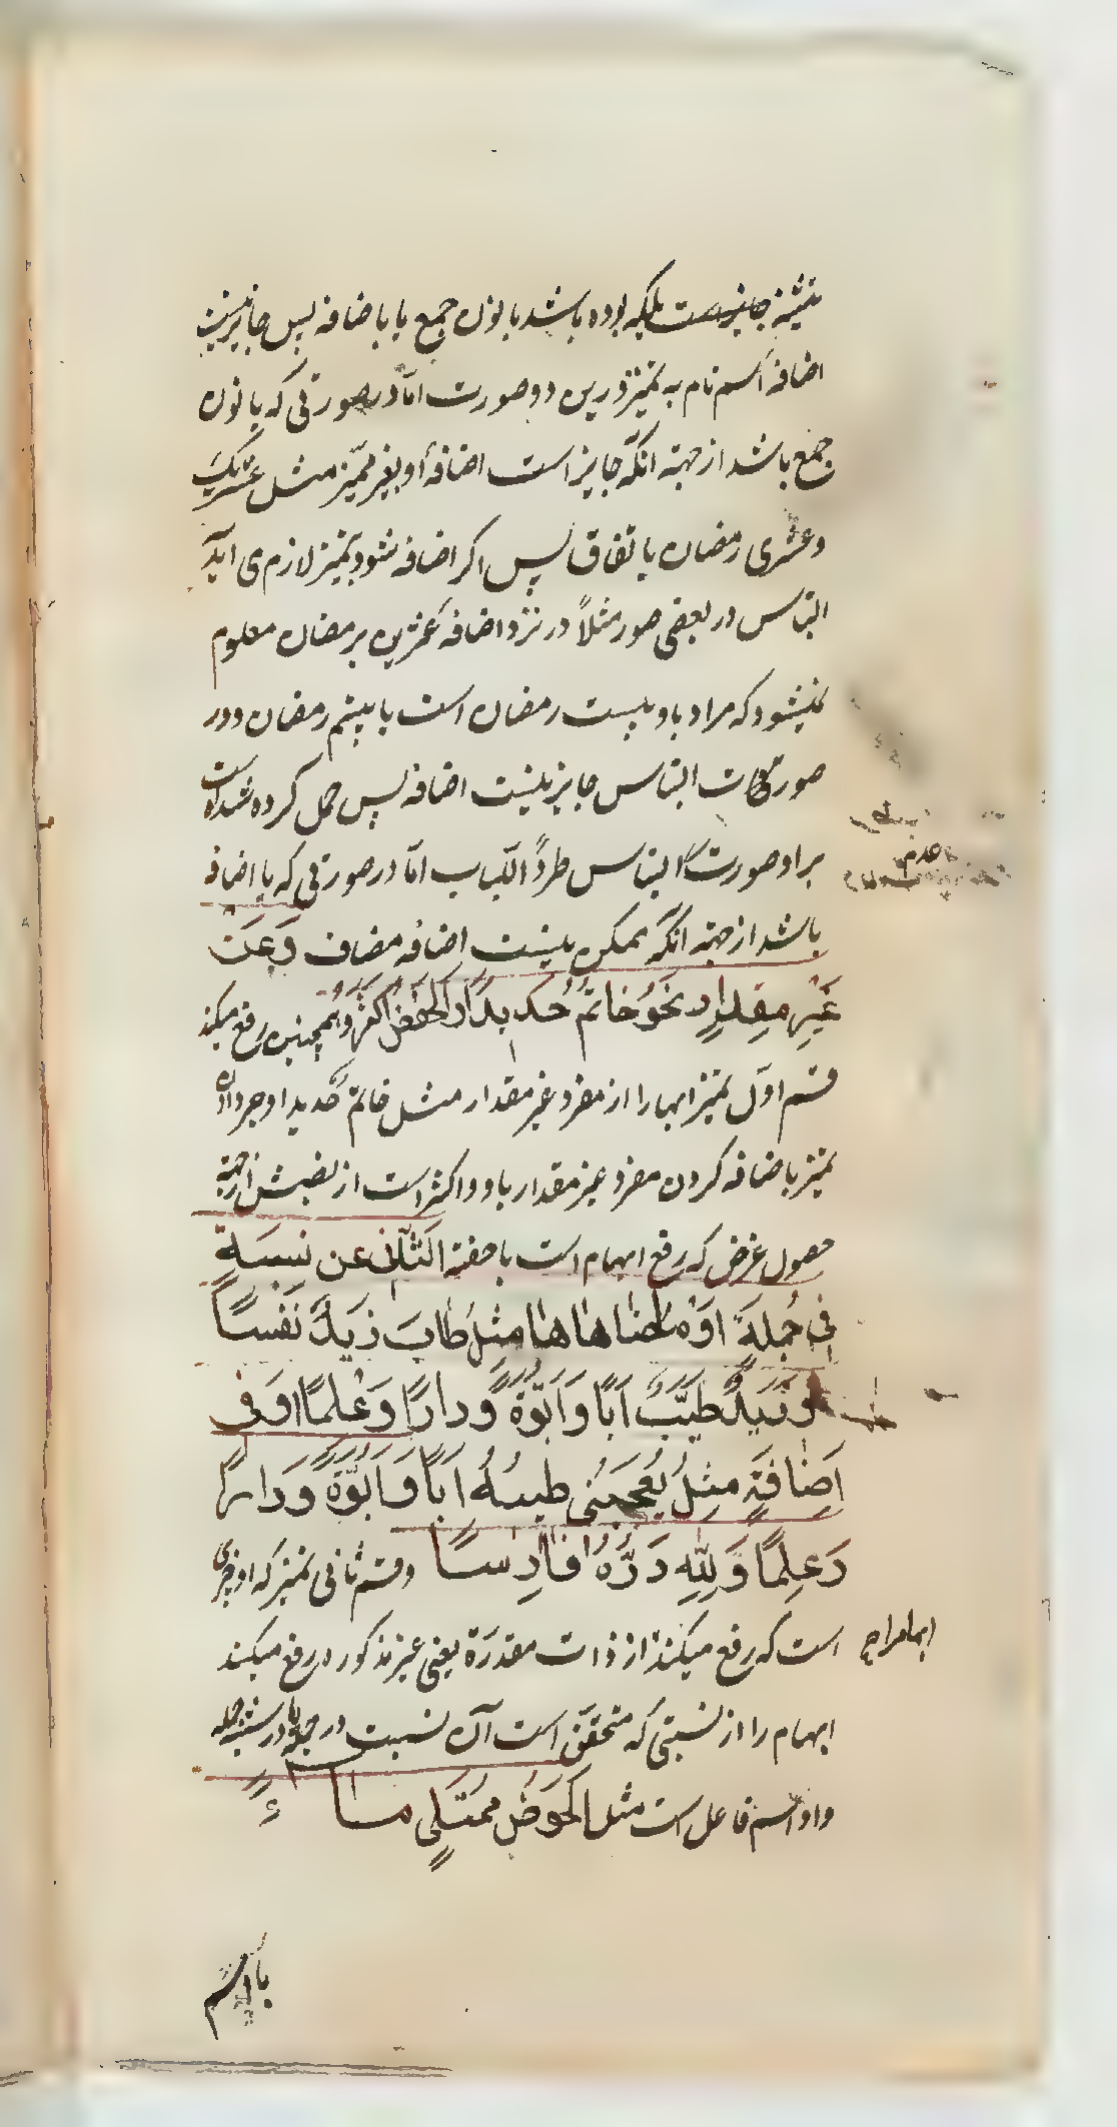 تثنیه جایزست بلکه بوده باشد با نون جمع یا باضافه پس جایز نیست
اضافه اسم تام به تمیز درین دو صورت امّا در صورتی که با نون
جمع باشد از جهته انکه جایز است اضافهٔ او بغیر ممیّز مثل عشریک
و عشری رمضان باتفاق پس اکر اضافه شود بتمیز لازم می آید
التباس در بعضی صور مثلاً در نزد اضافه عشرین برمضان معلوم
نمیشود که مراد باو بیست رمضان است یا بیستم رمضان و در
صورت التباس جایز نیست اضافه پس حمل کرده شده است
براو صورت التباس طرداً للباب امّا در صورتی که با اضافه
باشد از جهته انکه ممکن نیست اضافه مضاف وَعَن
غَیْرِ مِقدارٍ نَحوُ خاتمٌ حَدیدًا وَالخَفضُ اَکثَرُ و همچنین رفع میکند
قسم اوّل تمیز ابهام را از مفرد غیر مقدار مثل خاتمٌ حدیدا و جر دادن
تمیز باضافه کردن مفرد غیر مقدار باو و اکثر است از نصبش از جهته
حصول غرض که رفع ابهام است با خفته اَلثّانی عن نِسبَةٍ
فی جُملَةٍ اَوْ ما ضاهاها مِثلُ طابَ زَیدٌ نَفسًا
وزَیدٌ طَیِّبٌ اَبًا وَاَبُوَّةً وَدارًا وَعِلمًا اوَفی
اِضافَةٍ مِثلُ یُعجِبُنی طیبُهُ اَبًا وَاَبُوَّةً وَدارًا
وَعِلمًا وَلِلّٰهِ دَرُّهُ فارِسًا و قسم ثانی تمیز که او چیزی
است که رفع میکند از ذات مقدرة یعنی غیر مذکوره رفع میکند
ابهام را
ابهام را از نسبتی که متحقق است آن نسبت در جمله یا در شبه جمله
و او اسم فاعل است مثل اَلحَوضُ مُمتَلِیٌ ماءً
یا اسم